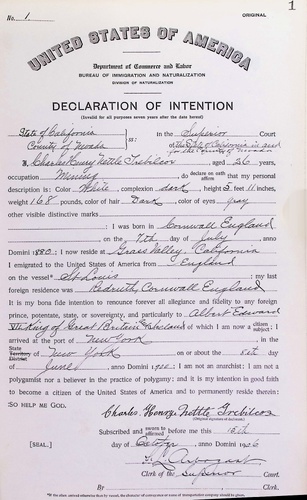 1
No. 1. ORIGINAL.
UNITED STATES OF AMERICA
Department of Commerce and Labor
BUREAU OF IMMIGRATION AND NATURALIZATION
DIVISION OF NATURALIZATION
DECLARATION OF INTENTION
(Invalid for all purposes seven years after the date hereof)
State of California
County of Nevada ss: In the Superior Court
of the State of California in and
for the County of Nevada
I, Charles Henry Nettle Trebilcox, aged 26 years,
occupation Mining, do declare on oath affirm that my personal
description is: Color White, complexion dark, height 5 feet 11 inches,
weight 168 pounds, color of hair Dark, color of eyes gray
other visible distinctive marks
I was born in Cornwall England
on the 7th day of July, anno
Domini 1880; I now reside at Grass Valley, California
I emigrated to the United States of America from England
on the vessel* St Louis; my last
foreign residence was Redruth, Cornwall England
It is my bona fide intention to renounce forever all allegiance and fidelity to any foreign
prince, potentate, state, or sovereignty, and particularly to Albert Edward
VII King of Great Britain & Ireland of which I am now a citizen subject; I
arrived at the port of New York, in the
State Territory District of New York on or about the day
of June, anno Domini; I am not an anarchist; I am not a
polygamist nor a believer in the practice of polygamy; and it is my intention in good faith
to become a citizen of the United States of America and to permanently reside therein:
SO HELP ME GOD.
Charles Henry Nettle Trebilcox
(Original signature of declarant)
Subscribed and sworn to affirmed before me this 15th
[SEAL.] day of, anno Domini 1906
Clerk of the Superior Court.
By, Clerk.